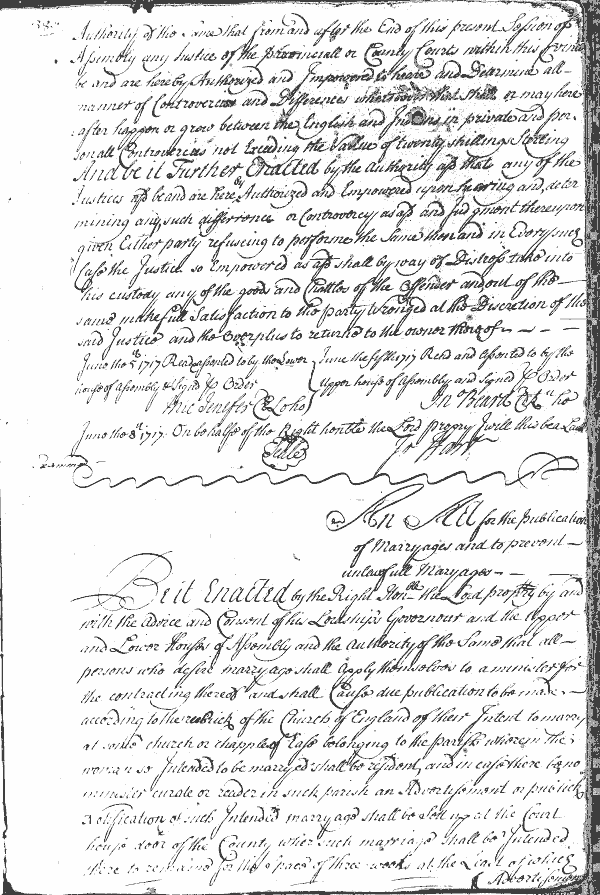 Authority of the same that from and after the End of this present Session of
Assembly any Justice of the provinciall or County Courts within this Province
be and are hereby Authorized and Impowred to heare and Determine all
manner of Controversies and Differences whatsoever that shall or may here
after happen or grow between the English and Indians in private and per
sonall Controversies not Exceeding the Vallue of twenty shillings Sterling
And be it Further Enacted by the Authority afd that any of the
Justices afd be and are hereby Authorized and Empowered upon hearing and deter
mining any such difference or Controversy as afd and Judgment thereupon
given Either party refuseing to performe the Same then and in Every such
Case the Justice so Impowered as afd shall by way of Distress take into
his custody any of the goods and Chattles of the Offender and out of the
same make full Satisfaction to the party wronged at the Discretion of the
said Justice and the Overplus to returne to the owner thereof
June the 5th 1717 Read assented to by the Lower
house of Assembly & Signd p Order
Mic Jenifer Cl Lo ho
June the 1717 Read and assented to by the
Upper house of Assembly and Signed p Order
Jn Beard Cl up ho
June the 8th 1717. On behalfe of the Right honble the Lord propry I will this be a Law
Seale
Jo Hart
An Act for the publication
of Marryages and to prevent
unlawfull Maryages
Be it Enacted by the Right Honble the Lord propry by and
with the advice and Consent of his Lordships Governour and the upper
and Lower Houses of Assembly and the Authority of the Same that all
persons who desire marryage shall Apply themselves to a minister for
the contracting thereof and shall Cause due publication to be made
according to the rubrick of the Church of England of their Intent to marry
at some church or chapple of Ease belonging to the parish wherein the
woman so Intended to be marryed shall be resident, and in case there be no
minister curate or reader in such parish an Advertisement or publick
Notification of such Intended marryage shall be Sett up at the Court
house door of the County where such marriage shall be Intended
there to remaine for the space of three weeks at the Least of which
Advertisement